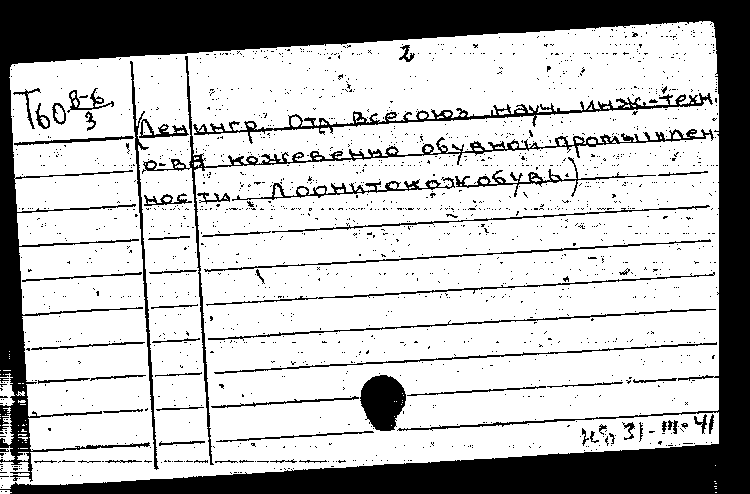 2
Т60 В-6/3
(Ленингр. Отд. Всесоюз. науч. инж.-техн.
о-ва кожевенно обувной промышлен
ности. Лоонитокожобувь.)
31-III-41